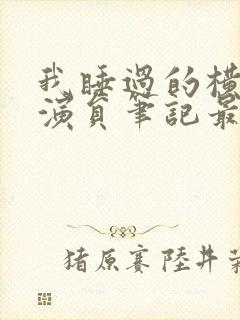 我睡過的橫
演員筆記最
猪原賽陸井